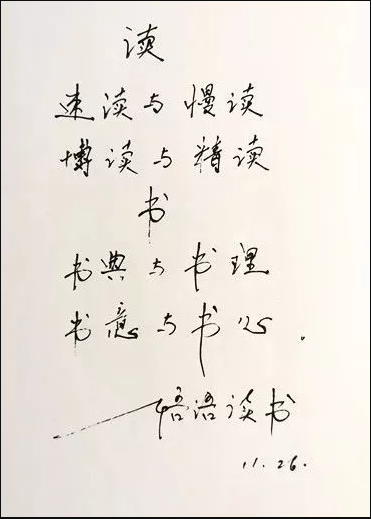 读
速读与慢读
博读与精读
书
书典与书理
书意与书心.
——悟语读书
11.26.